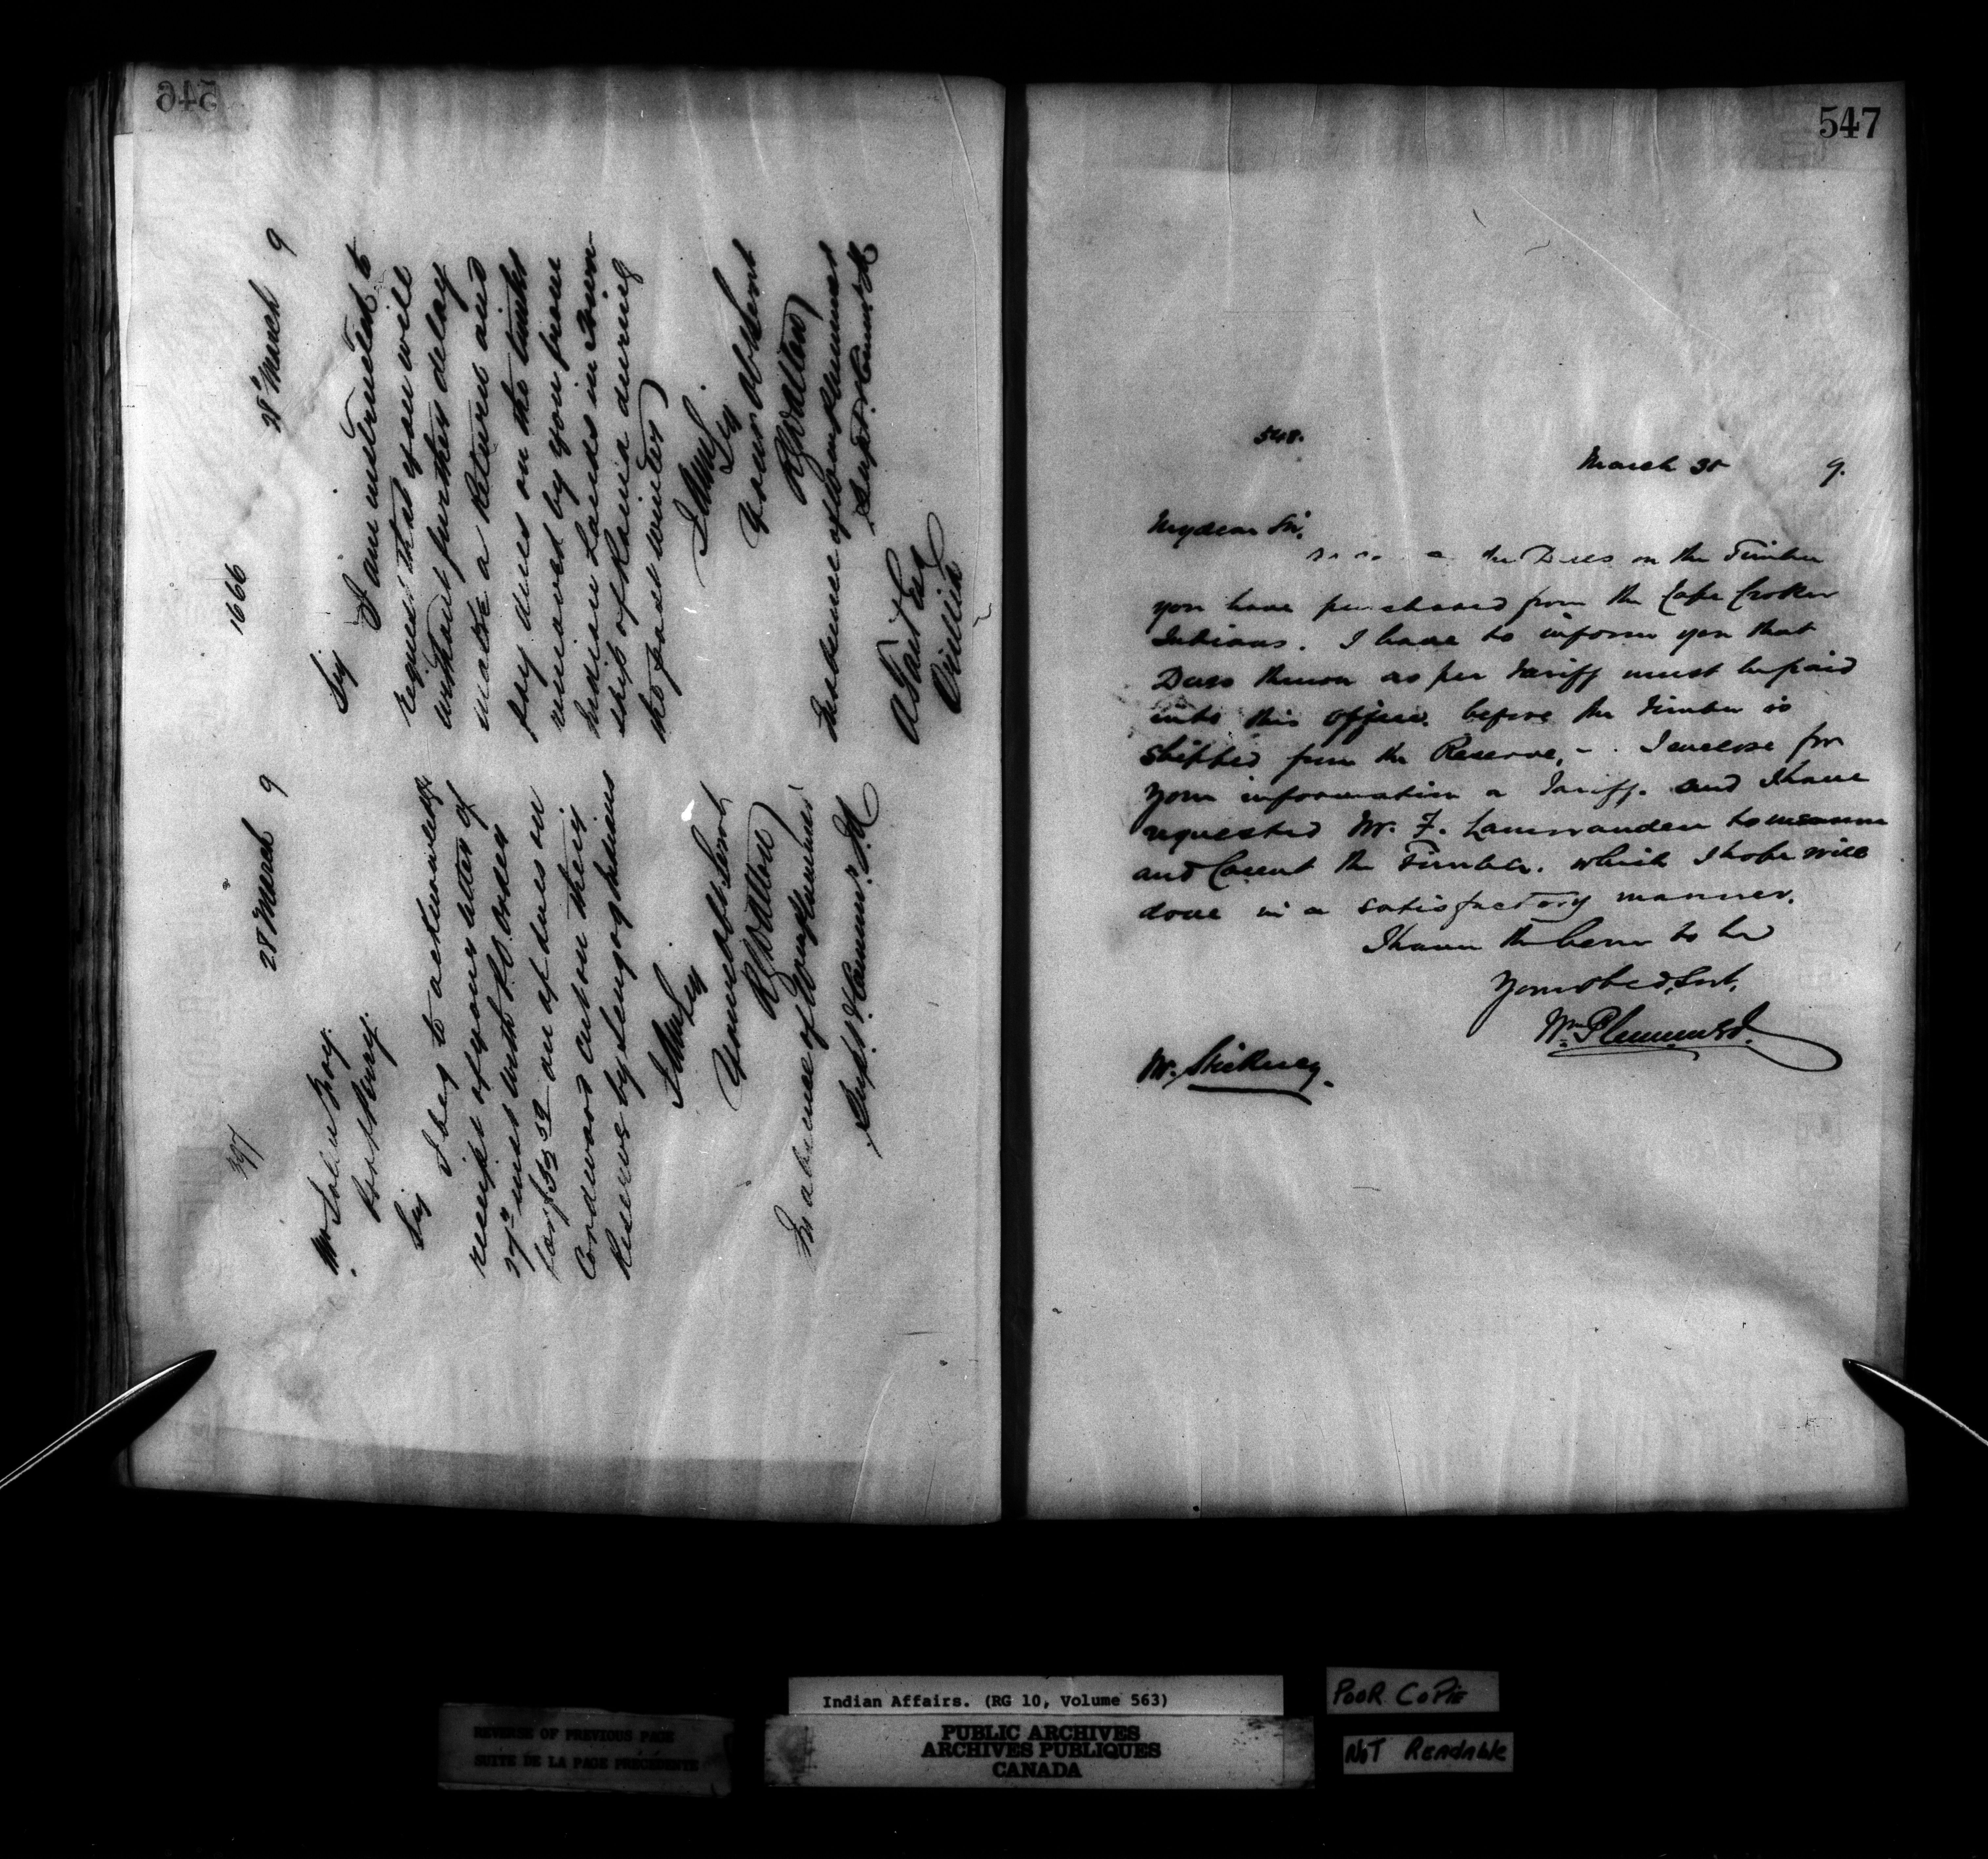 546
397
28 March 9
Mr John
Sir
I beg to acknowledge
receipt of your letter of
27th inst with P.O. order
for $ on acct of dues on
Cordwood cut on their
Reserve by Indians
I am Sir
Your obt Servt
In absence of Wm Plummer
Supt & Commr. I.A
1666
28th March 9
Sir
I am instructed to
request that you will
without further delay
make a Return and
pay dues on the timber
removed by you from
Indian Lands in Town-
ship of Rama during
the past winter
I am Sir
Your obt Servt
In absence of Wm Plummer
Supt & Commr I A
Orillia
547
548.
March 9.
My dear Sir,
the Dues on the Timber
you have purchased from the Cape Croker
Indians. I have to inform you that
Dues thereon as per Tariff must be paid
into this office before the Timber is
shipped from the Reserve, - . I enclose for
your information a Tariff. and I have
requested Mr. F. to measure
and Count the Timber. which I hope will
done in a satisfactory manner.
I have the honor to be
Your obed. Svt,
Wm Plummer
Mr.
Indian Affairs. (RG 10, Volume 563)
PUBLIC ARCHIVES
ARCHIVES PUBLIQUES
CANADA
REVERSE OF PREVIOUS PAGE
SUITE DE LA PAGE PRÉCÉDENTE
POOR COPIE
NOT READABLE